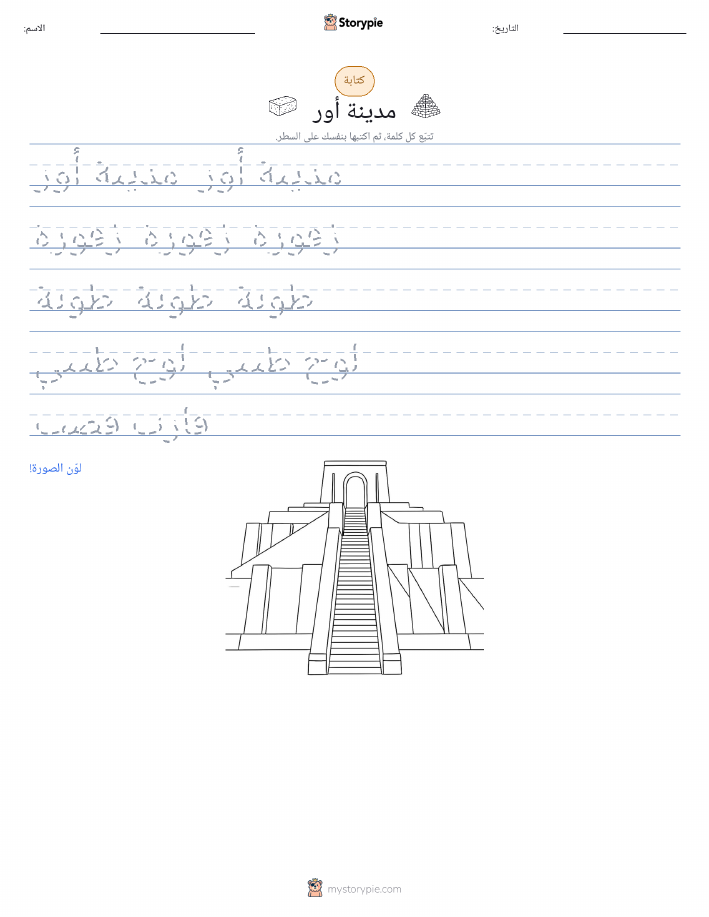 الاسم:
Storypie
التاريخ:
كتابة
مدينة أور
تتبّع كل كلمة، ثم اكتبها بنفسك على السطر.
مدينة أور مدينة أور
زقورة زقورة زقورة
طوبة طوبة طوبة
لوح طيني لوح طيني
قارب قصب
لوّن الصورة!
mystorypie.com